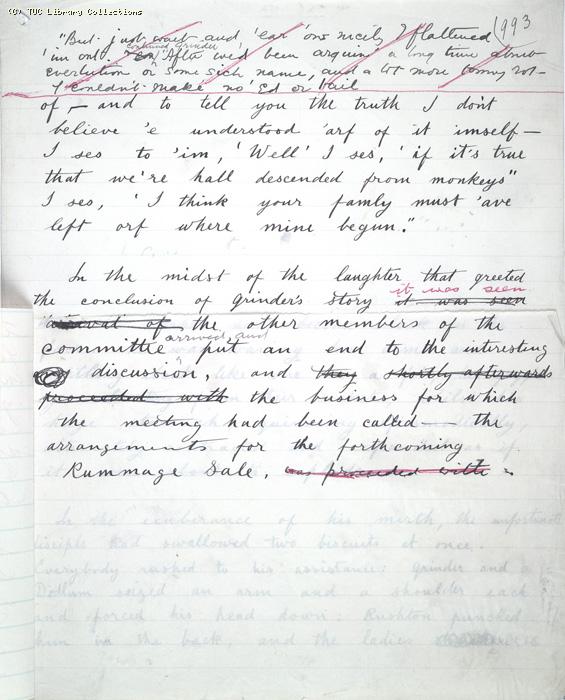 (C) TUC Library Collections
1993
"But just wait and 'ear 'ow nicely I flattened
'im out.
continued Grinder
"After we'd been arguin' a long time about
everlution or some sich name, and a lot more tommy rot
I couldn't make no 'Ed or tail
of,— and to tell you the truth I don't
believe 'e understood 'arf of it imself—
I ses to 'im, 'Well' I ses, 'if it's true
that we're hall descended from monkeys"
I ses, 'I think your famly must 'ave
left orf where mine begun."
In the midst of the laughter that greeted
it was seen
the conclusion of Grinder's story it was seen
of the other members of the
arrived, and
committee put an end to the interesting
discussion, and they shortly afterwards
proceeded with the business for which
the meeting had been called — the
arrangements for the forthcoming
Rummage Sale, was proceeded with.
In the exuberance of his mirth, the unfortunate
disciple had swallowed two biscuits at once.
Everybody rushed to his assistance: Grinder and
Didlum seized an arm and a shoulder each
and forced his head down: Rushton punched
him in the back, and the ladies